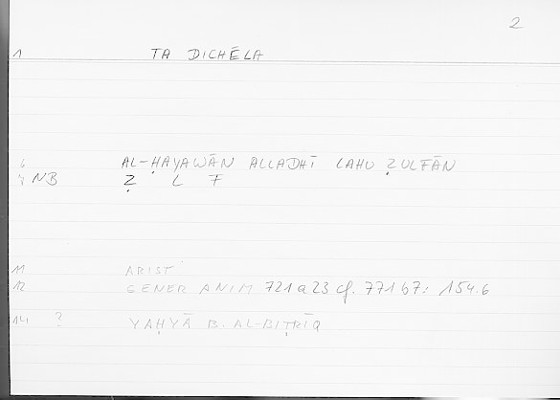 2
1 TA DICHĒLA
6 AL-ḤAYAWĀN ALLADHĪ LAHU ẒULFĀN
7 NB Ẓ L F
11 ARIST
12 GENER ANIM 721a23 cf. 771b7: 154.6
14 ? YAḤYĀ B. AL-BIṬRĪQ